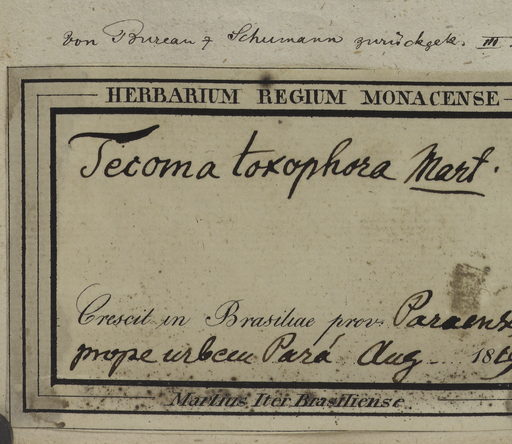 von Bureau & Schumann zurückgek. III
HERBARIUM REGIUM MONACENSE
Tecoma toxophora Mart.
Crescit in Brasiliae prov. Paraens
prope urbem Pará Aug 1819
Martius Iter Brasiliense